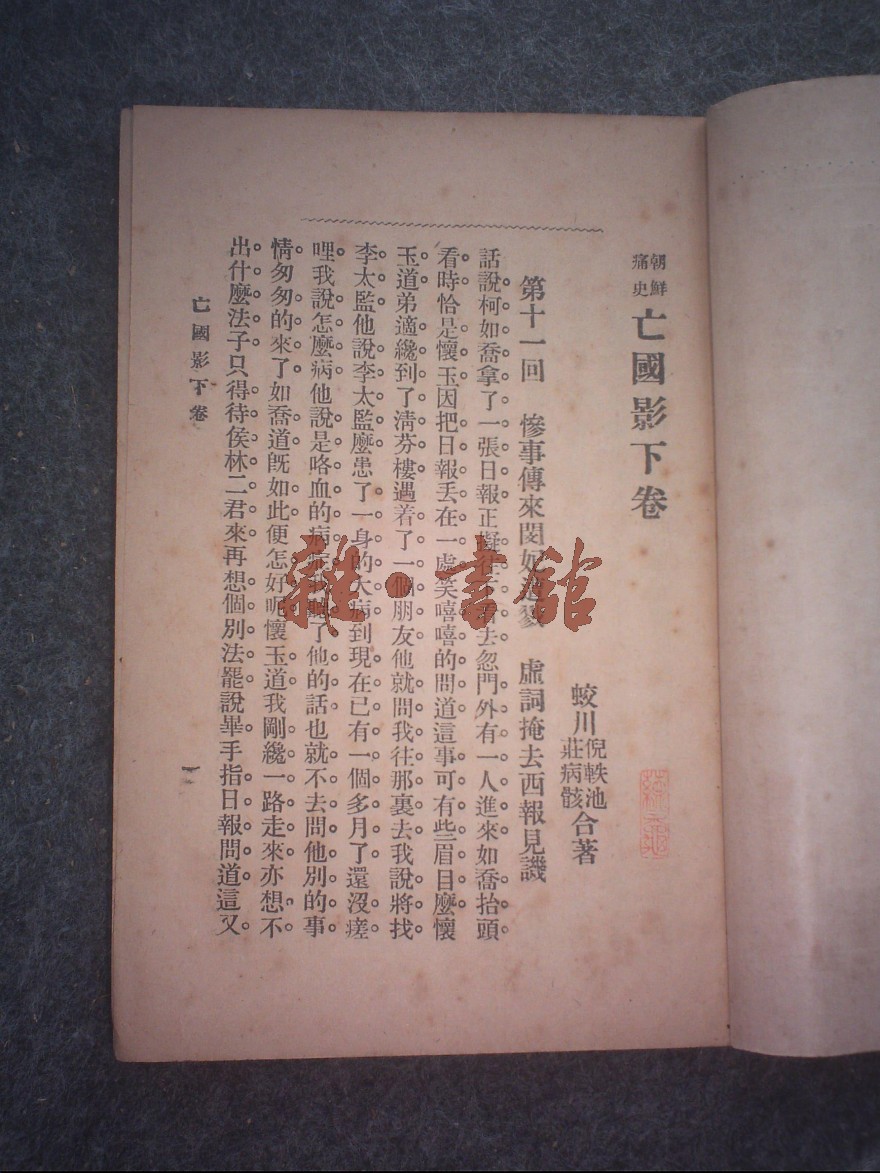 朝鮮痛史 亡國影下卷
蛟川 倪軼池 莊病骸 合著
第十一回 慘事傳來閔妃遭戮 虛詞掩去西報見譏
話說柯如喬拿了一張日報正 去忽門外有一人進來如喬抬頭
看時恰是懷玉因把日報丟在一處笑嘻嘻的問道這事可有些眉目麼懷
玉道弟適纔到了淸芬樓遇着了一個朋友他就問我往那裏去我說將找
李太監他說李太監麼患了一身的大病到現在已有一個多月了還沒瘥
哩我說怎麼病他說是咯血的病 了他的話也就不去問他別的事
情匆匆的來了如喬道旣如此便怎好呢懷玉道我剛纔一路走來亦想不
出什麼法子只得待侯林二君來再想個別法罷說畢手指日報問道這又
亡國影下卷
一
雜·書館